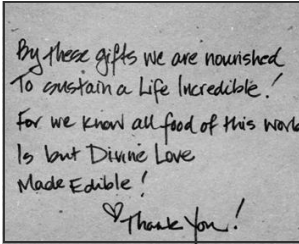 By these gifts we are nourished
To sustain a Life Incredible!
For we know all food of this world
Is but Divine Love
Made Edible!
♡ Thank You!